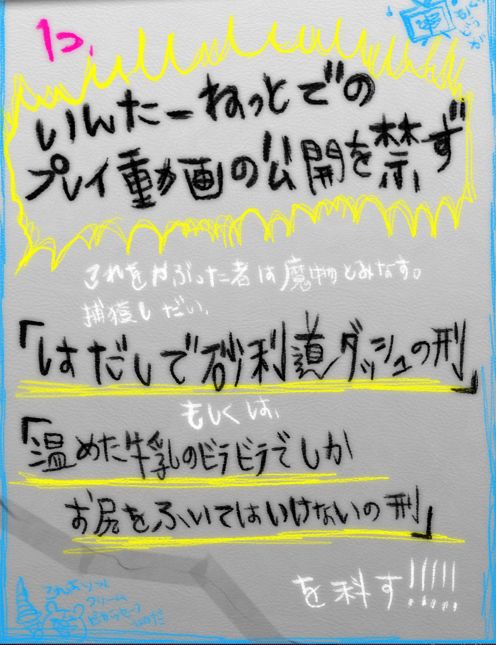 1つ、
いんたーねっとでの
プレイ動画の公開を禁ず
これをやぶった者は魔物とみなす。
捕獲しだい、
「はだしで砂利道ダッシュの刑」
もしくは、
「温めた牛乳のビラビラでしか
お尻をふいてはいけないの刑」
を科す!!!!!